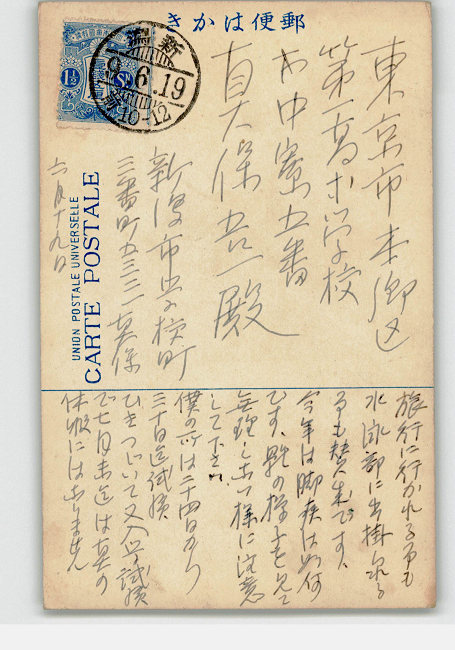 郵便はかき
新潟
9.6.19
后10-12
1½
Sn
東京市本郷区
第一高等学校
中寮五番
真保吾一殿
新潟市学校町
三番町五三三一真保
六月十九日
UNION POSTALE UNIVERSELLE
CARTE POSTALE
旅行に行かれる事も
水泳部に出掛られる
事も賛成です、
今年は脚疾は如何
です、躰の様子を見て
無理しない様に注意
して下さい
僕の方は二十四日から
三十日迄試験
ひきつゞいて又入学試験
で七月末迄は真の
休暇にはなりません